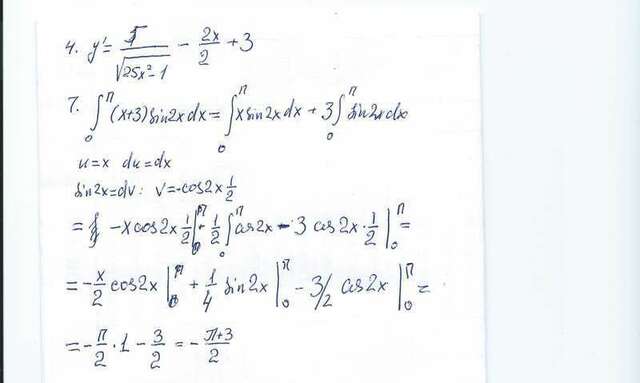 4. y' = 5/√(25x²-1) - 2x/2 + 3
7. ∫₀^π (x+3) sin2x dx = ∫₀^π x sin2x dx + 3 ∫₀^π sin2x dx
u=x du=dx
sin2x=dv: v=-cos2x 1/2
= -x cos2x 1/2 |₀^π + 1/2 ∫₀^π cos2x - 3 cos2x · 1/2 |₀^π =
= -x/2 cos2x |₀^π + 1/4 sin2x |₀^π - 3/2 cos2x |₀^π =
= -π/2 · 1 - 3/2 = - (π+3)/2